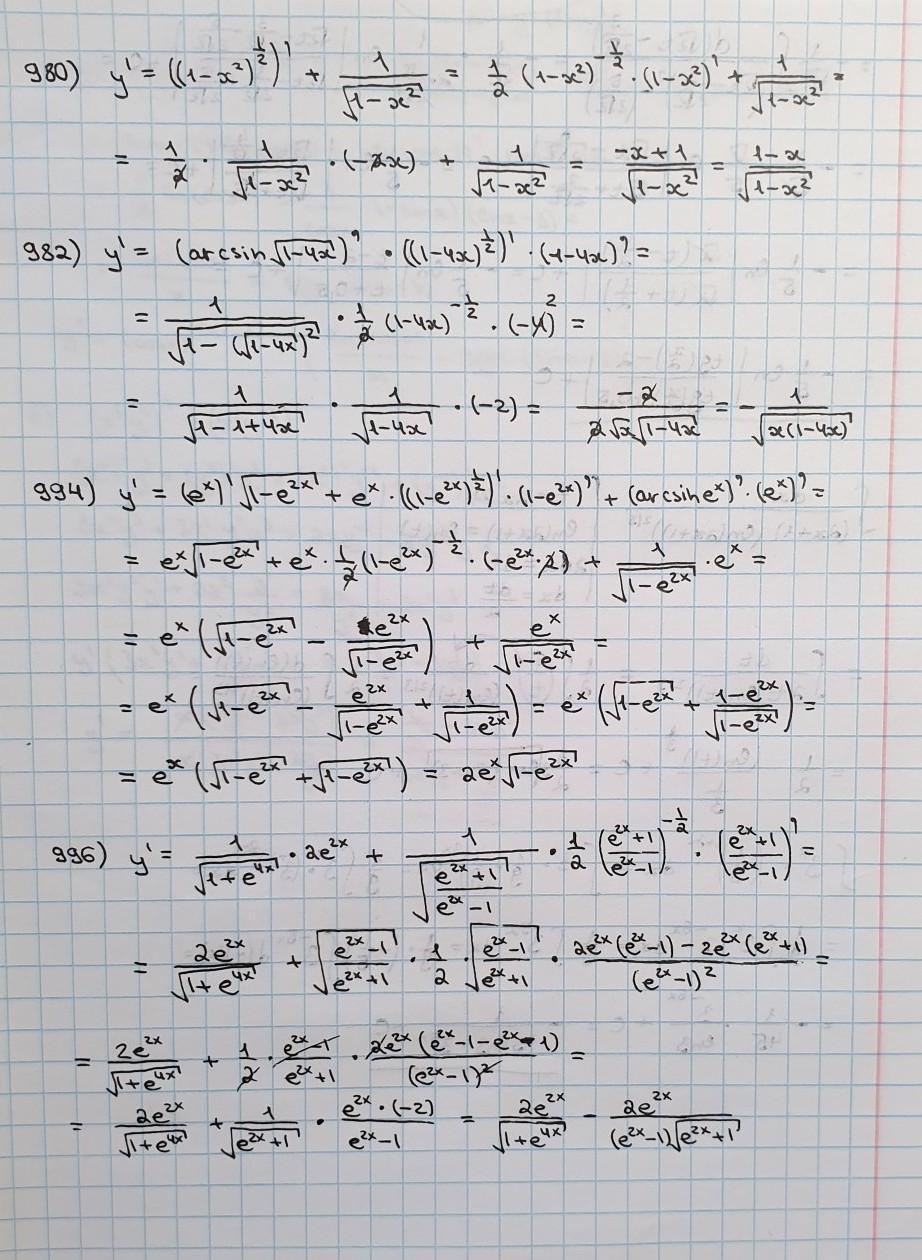 980) y' = ((1-x²)^{1/2})' + 1/√(1-x²) = 1/2 (1-x²)^{-1/2} · (1-x²)' + 1/√(1-x²) =
= 1/2 · 1/√(1-x²) · (-2x) + 1/√(1-x²) = (-x+1)/√(1-x²) = (1-x)/√(1-x²)
982) y' = (arcsin√(1-4x))' · ((1-4x)^{1/2})' · (1-4x)' =
= 1/√(1-(√(1-4x))²) · 1/2 (1-4x)^{-1/2} · (-4)² =
= 1/√(1-1+4x) · 1/√(1-4x) · (-2) = -2/(2√x√(1-4x)) = - 1/√(x(1-4x))
994) y' = (e^x)' √(1-e^{2x}) + e^x · ((1-e^{2x})^{1/2})' · (1-e^{2x})' + (arcsin e^x)' · (e^x)' =
= e^x√(1-e^{2x}) + e^x · 1/2 (1-e^{2x})^{-1/2} · (-e^{2x}·2) + 1/√(1-e^{2x}) · e^x =
= e^x (√(1-e^{2x}) - e^{2x}/√(1-e^{2x})) + e^x/√(1-e^{2x}) =
= e^x (√(1-e^{2x}) - e^{2x}/√(1-e^{2x}) + 1/√(1-e^{2x})) = e^x (√(1-e^{2x}) + (1-e^{2x})/√(1-e^{2x})) =
= e^x (√(1-e^{2x}) + √(1-e^{2x})) = 2e^x √(1-e^{2x})
996) y' = 1/√(1+e^{4x}) · 2e^{2x} + 1/√((e^{2x}+1)/(e^{2x}-1)) · 1/2 ((e^{2x}+1)/(e^{2x}-1))^{-1/2} · ((e^{2x}+1)/(e^{2x}-1))' =
= 2e^{2x}/√(1+e^{4x}) + √((e^{2x}-1)/(e^{2x}+1)) · 1/2 · √((e^{2x}-1)/(e^{2x}+1)) · (2e^{2x}(e^{2x}-1) - 2e^{2x}(e^{2x}+1))/(e^{2x}-1)² =
= 2e^{2x}/√(1+e^{4x}) + 1/2 · (e^{2x}-1)/(e^{2x}+1) · 2e^{2x}(e^{2x}-1-e^{2x}-1)/(e^{2x}-1)² =
= 2e^{2x}/√(1+e^{4x}) + 1/√(e^{2x}+1) · e^{2x}·(-2)/(e^{2x}-1) = 2e^{2x}/√(1+e^{4x}) - 2e^{2x}/((e^{2x}-1)√(e^{2x}+1))